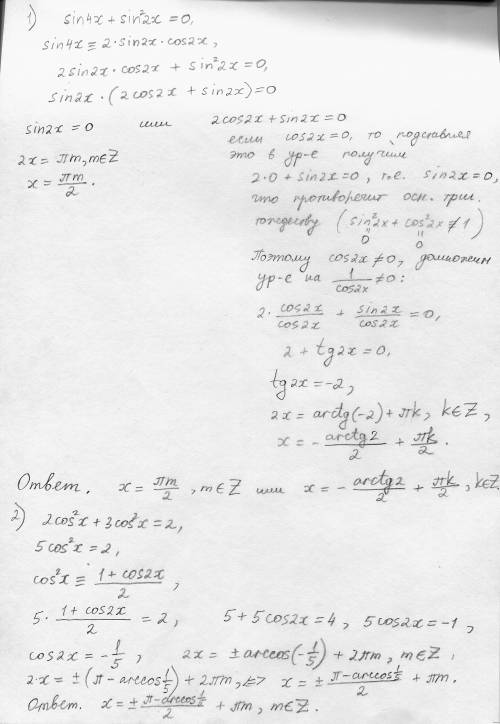 1) sin4x + sin²2x = 0,
sin4x ≡ 2·sin2x·cos2x,
2sin2x·cos2x + sin²2x = 0,
sin2x·(2cos2x + sin2x) = 0
sin2x = 0 или 2cos2x + sin2x = 0
2x = πm, m∈Z
x = πm/2.
если cos2x = 0, то подставляя
это в ур-е получим
2·0 + sin2x = 0, т.е. sin2x = 0,
что противоречит осн. триг.
тождеству (sin²2x + cos²2x ≠ 1)
0 0
Поэтому cos2x ≠ 0, домножим
ур-е на 1/cos2x ≠ 0:
2·cos2x/cos2x + sin2x/cos2x = 0,
2 + tg2x = 0,
tg2x = -2,
2x = arctg(-2) + πk, k∈Z,
x = -arctg2/2 + πk/2.
Ответ. x = πm/2, m∈Z или x = -arctg2/2 + πk/2, k∈Z.
2) 2cos²x + 3cos²x = 2,
5cos²x = 2,
cos²x ≡ (1 + cos2x)/2,
5·(1 + cos2x)/2 = 2, 5 + 5cos2x = 4, 5cos2x = -1,
cos2x = -1/5, 2x = ±arccos(-1/5) + 2πm, m∈Z.
2·x = ±(π - arccos1/5) + 2πm, <=> x = ±(π - arccos1/5)/2 + πm.
Ответ. x = ±(π - arccos1/5)/2 + πm, m∈Z.